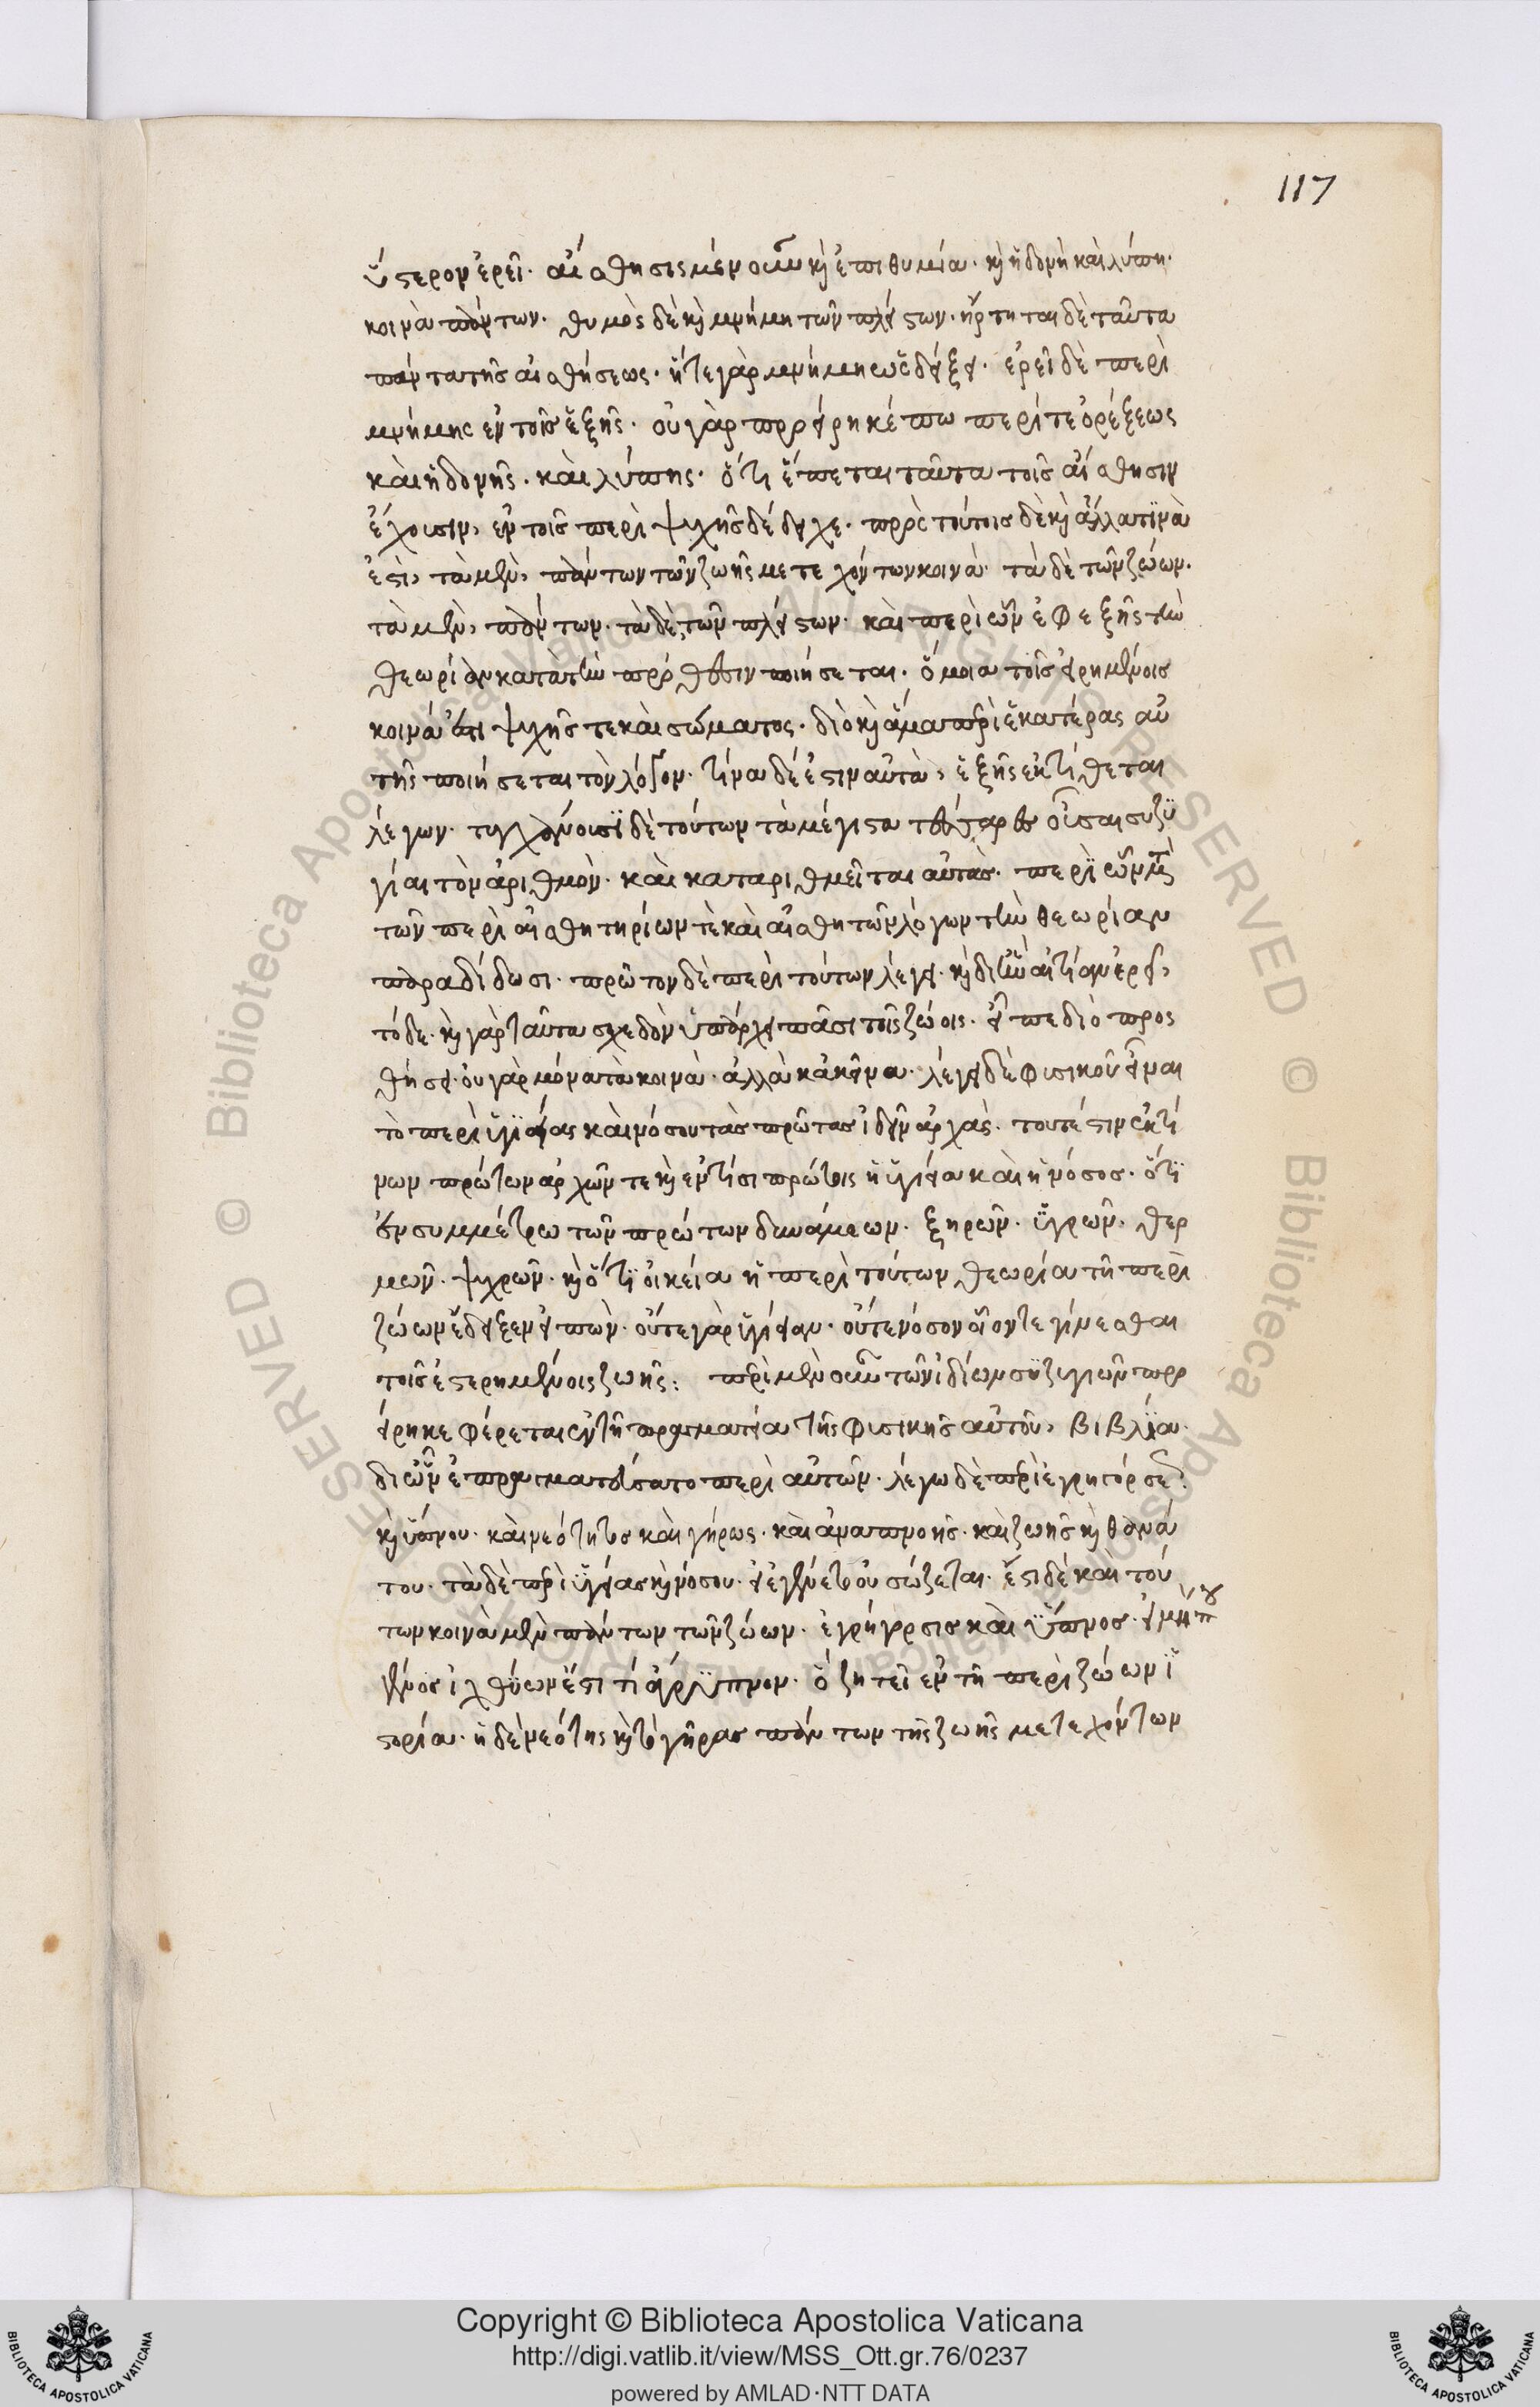 117
ὕστερον ἐρεῖ. αἴσθησις μὲν οὖν κὶ ἐπιθυμία. κὶ ἡδονὴ καὶ λύπη.
κοινὰ πάντων. θυμὸς δὲ κὶ μνήμη τῶν πλείστων. ἤρτηται δὲ ταῦτα
πάντα τῆς αἰσθήσεως. ἥ τε γὰρ μνήμη ὡς δείξει. ἐρεῖ δὲ περὶ
μνήμης ἐν τοῖς ἑξῆς. οὐ γὰρ προείρηκέ πω περί τε ὀρέξεως
καὶ ἡδονῆς. καὶ λύπης. ὅτι ἕπεται ταῦτα τοῖς αἴσθησιν
ἔχουσιν, ἐν τοῖς περὶ ψυχῆς δέδειχε. πρὸς τούτοις δὲ κὶ ἄλλα τινὰ
ἐστι, τὰ μὲν, πάντων τῶν ζωῆς μετεχόντων κοινά. τὰ δὲ τῶν ζώων.
τὰ μὲν, πάντων. τὰ δὲ τῶν πλείστων. καὶ περὶ ὧν ἐφεξῆς τὴν
θεωρίαν κατὰ τὴν πρόθεσιν ποιήσεται. ὅμοια τοῖς εἰρημένοις
κοινά ἐστι ψυχῆς τε καὶ σώματος. διὸ κὶ ἅμα περὶ ἑκατέρας αὐ
τῆς ποιήσεται τὸν λόγον. τίνα δέ ἐστιν αὐτὰ, ἑξῆς ἐκτίθεται
λέγων. τυγχάνουσι δὲ τούτων τὰ μέγιστα τέτταρες οὖσαι συζυ
γίαι τὸν ἀριθμόν. καὶ καταριθμεῖται αὐτάς. περὶ ὧν μετὰ
τῶν περὶ αἰσθητηρίων τὲ καὶ αἰσθητῶν λόγων τὴν θεωρίαν
παραδίδωσι. πρῶτον δὲ περὶ τούτων λέγει. κὶ δι' ἣν αἰτίαν ἐρεῖ,
τόδε. κὶ γὰρ ταῦτα σχεδὸν ὑπάρχει πᾶσι τοῖς ζώοις. εἶπε διὸ προς
θήσει. οὐ γὰρ μόνα τὰ κοινὰ. ἀλλὰ κἀκεῖνα. λέγει δὲ φυσικοῦ εἶναι
τὸ περὶ ὑγιείας καὶ νόσου τὰς πρώτας ἰδεῖν ἀρχάς. τουτέστιν ἐκ τί
νων πρώτων ἀρχῶν τε κὶ ἐν τίσι πρώτοις ἡ ὑγίεια καὶ ἡ νόσος. ὅτι
ἐν συμμέτρω τῶν πρώτων δυνάμεων. ξηρῶν. ὑγρῶν. θερ
μῶν. ψυχρῶν. κὶ ὅτι οἰκεία ἡ περὶ τούτων θεωρία τῆ περὶ
ζώων ἔδειξεν εἰπὼν. οὔτε γὰρ ὑγίειαν. οὔτε νόσον οἷόν τε γίνεσθαι
τοῖς ἐστερημένοις ζωῆς: περὶ μὲν οὖν τῶν ἰδίων συζυγιῶν προ
είρηκε φέρεται ἐν τῆ πραγματεία τῆς φυσικῆς αὐτοῦ, βιβλία.
δι' ὧν ἐπραγματεύσατο περὶ αὐτῶν. λέγω δὲ περὶ ἐγρηγόρσεως.
κὶ ὕπνου. καὶ νεότητος καὶ γήρως. καὶ ἀναπνοῆς. καὶ ζωῆς κὶ θανά
του. τὰ δὲ περὶ ὑγείας κὶ νόσου. εἰ ἐγένετο οὐ σώζεται. ἔστι δὲ καὶ τού
των κοινὰ μὲν πάντων τῶν ζώων. ἐγρήγορσις καὶ ὕπνος. εἰ μή που
γένος ἰχθύων ἐστί τι ἄγρυπνον. ὃ ζητεῖ ἐν τῆ περὶ ζώων ἱ
στορία. ἡ δὲ νεότης κὶ τὸ γῆρας πάντων τῆς ζωῆς μετεχόντων
Copyright © Biblioteca Apostolica Vaticana
http://digi.vatlib.it/view/MSS_Ott.gr.76/0237
powered by AMLAD·NTT DATA